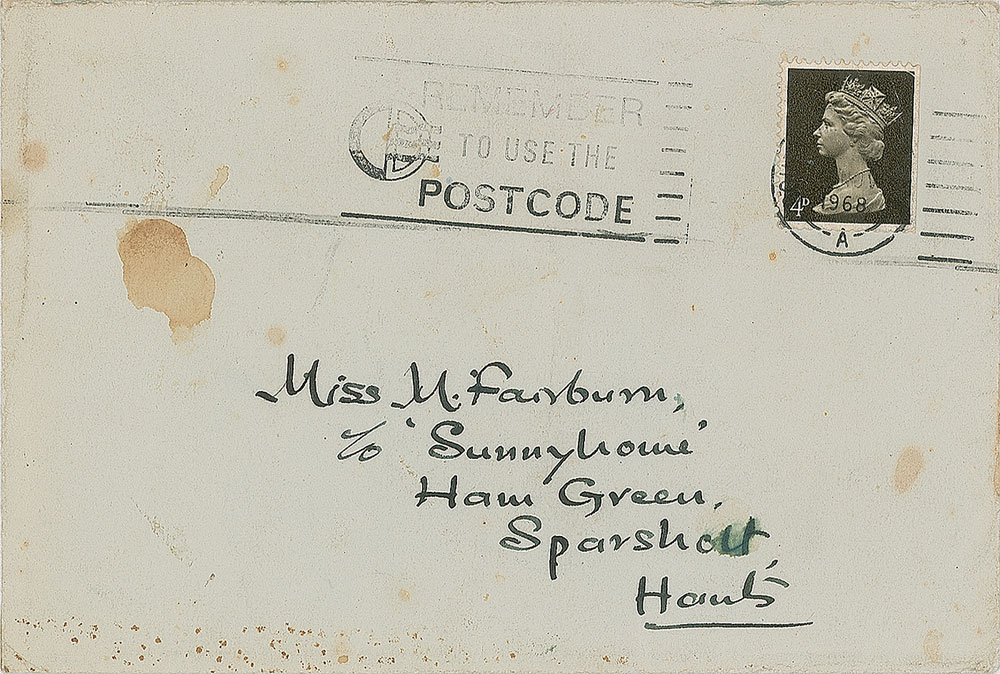 REMEMBER
TO USE THE
POSTCODE
4D
1968
A
Miss M. Fairburn,
c/o 'Sunnyhome'
Ham Green,
Sparsholt,
Hants